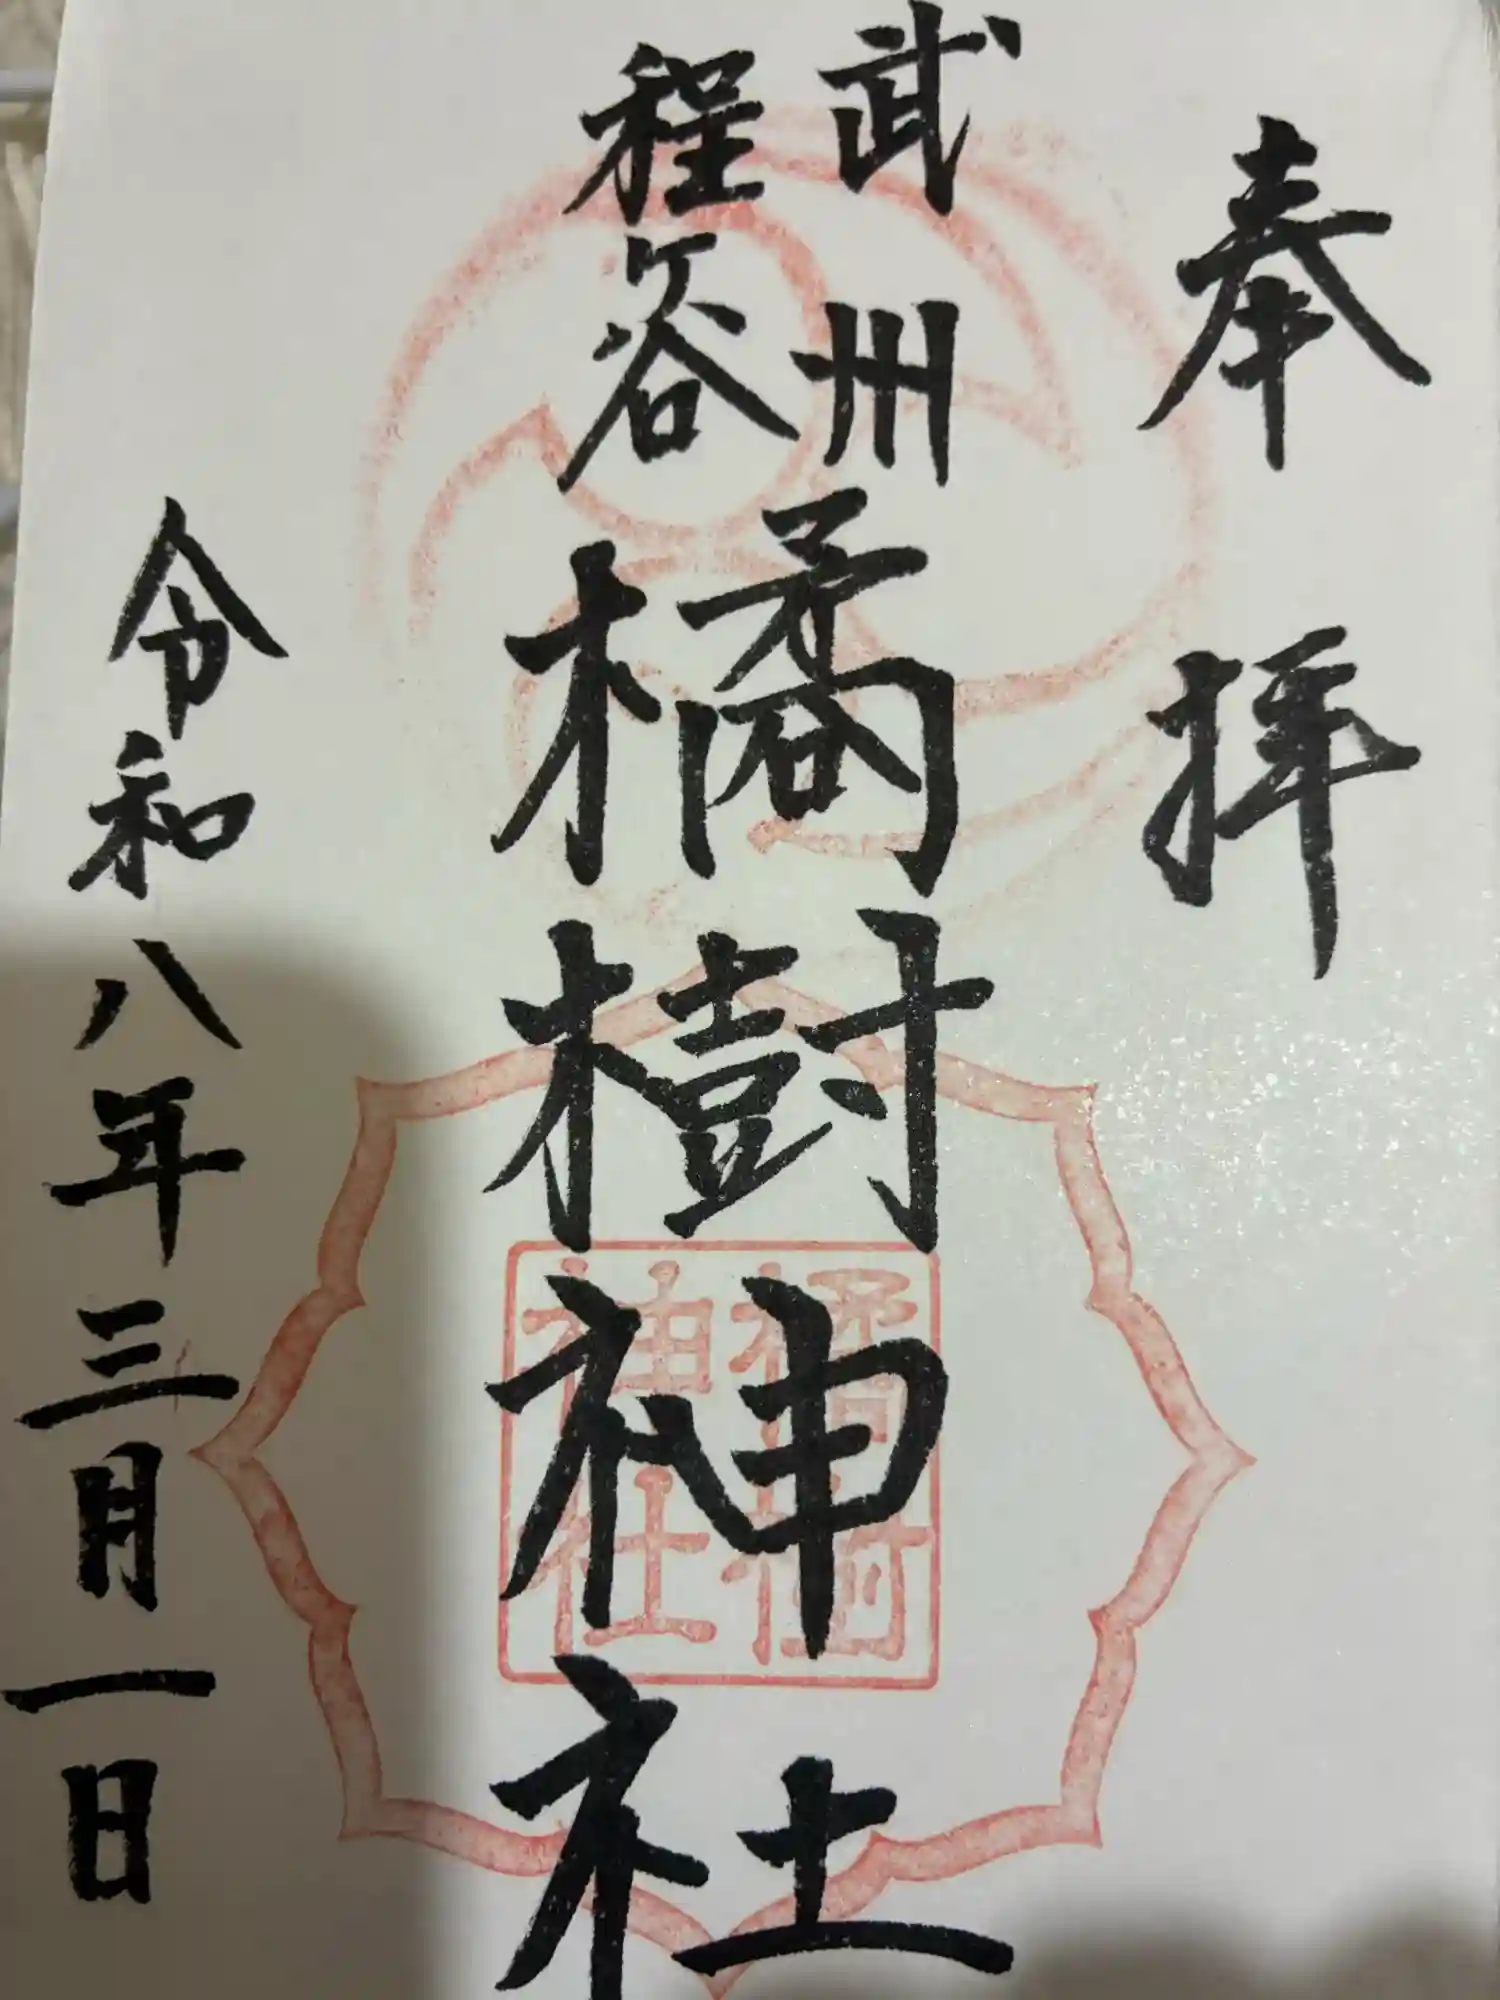 奉拝
武州
程ヶ谷
橘樹神社
橘樹
神社
令和八年三月一日